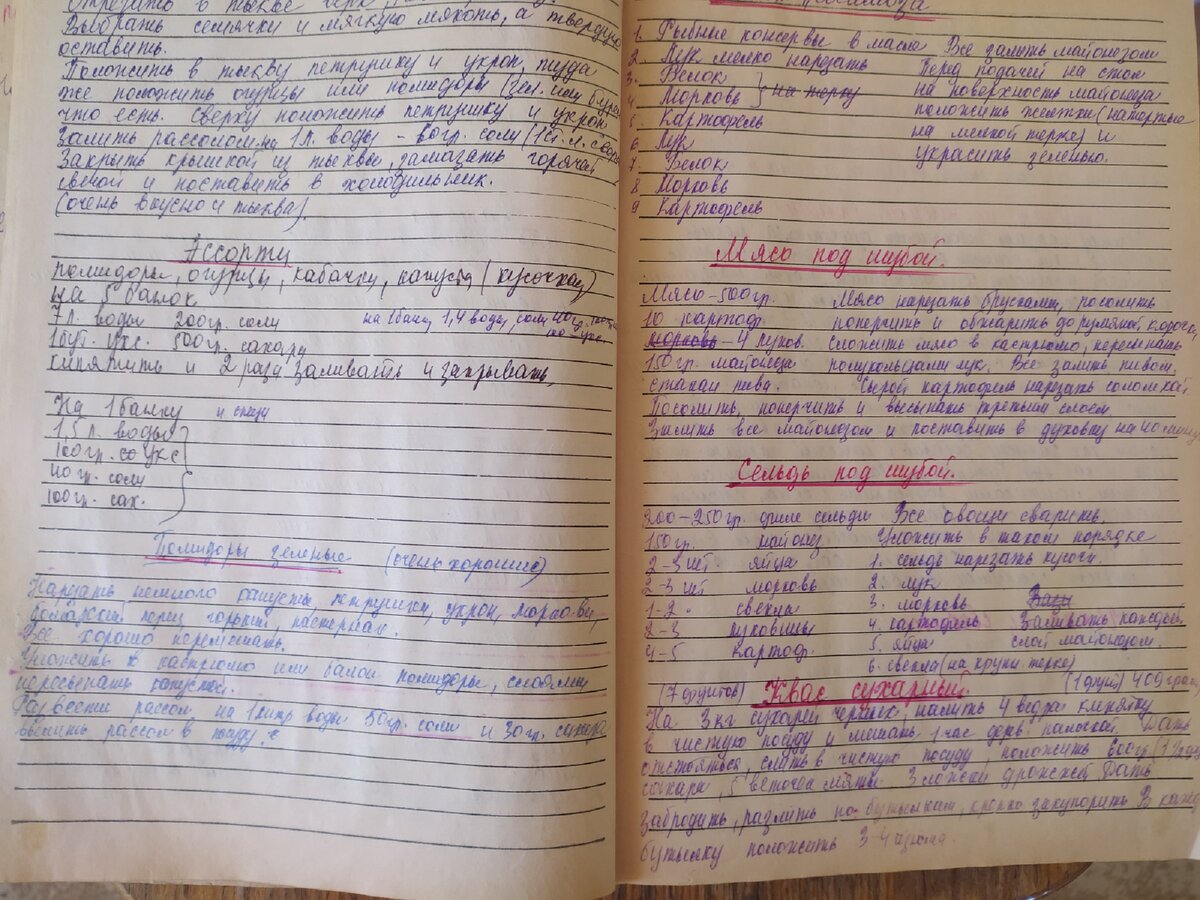 Отрезать в тыкве верх,
Выбрать семячки и мягкую мякоть, а твердую
оставить.
Положить в тыкву петрушку и укроп, туда
же положить огурцы или помидоры (зел. или бурые
что есть. Сверху положить петрушку и укроп
Залить рассолом на 1 л. воды - 60 гр. соли (1 ст. л. с
Закрыть крышкой из тыквы, замазать горячей
свечой и поставить в холодильник.
(очень вкусно и тыква).
Ассорти
помидоры, огурцы, кабачки, капуста (кусочками)
на 5 банок
7 л. воды 200 гр. соли на 1 банку 1,4 воды, соли 40 гр.
1 бут. укс. 500 гр. сахару
кипятить и 2 раза заливать и закрывать.
На 1 банку и специ
1,5 л. воды
100 гр. со укс
40 гр. соли
100 гр. сах.
Помидоры зеленые (очень хорошие)
Нарезать немного капусты, петрушки, укроп, моркови,
болгарский перец горький, пастернак.
Все хорошо перемешать.
Уложить в кастрюлю или балон помидоры, слоями
пересыпать капустой.
Развести рассол на 1 литр воды 50 гр. соли и 30 гр. сахара
влить рассол в посуду.
1. Рыбные консервы в масле Все залить майонезом
2. Лук мелко нарезать Перед подачей на стол
3. Белок на терку на поверхность майонеза
4. Морковь положить желтки (натертые
5. Картофель на мелкой терке) и
6 Лук украсить зеленью.
7 Белок
8 Морковь
9 Картофель
Мясо под шубой.
Мясо - 500 гр. Мясо нарезать брусками, посолить
10 картоф. поперчить и обжарить до румяной корочки,
морковь - 4 луков. сложить мясо в кастрюлю, пересыпать
150 гр. майонеза полукольцами лук. Все залить пивом,
стакан пива. Сырой картофель нарезать соломкой
Посолить, поперчить и высыпать третьим слоем
Залить все майонезом и поставить в духовку на 40 минут
Сельдь под шубой.
200-250 гр. филе сельди Все овощи сварить.
150 гр. майонез Уложить в таком порядке
2-3 шт. яйца 1. сельдь нарезать кусочк.
2-3 шт морковь 2. лук
1-2. свекла 3. морковь
2-3 луковицы 4. картофель Заливать каждый
4-5 картоф. 5. яйца слой майонезом.
6. свекла (на крупн. терке)
(7 фунтов) Квас сухарный. (1 фунт) 409 грам
На 3 кг сухарей черных, налить 4 ведра кипятку
в чистую посуду и мешать 1 час дерев. палочкой. Дать
отстояться, слить в чистую посуду, положить 800 гр
сахара, 5 веточек мяты 3 ложки дрожжей Дать
забродить, разлить по бутылкам, крепко закупорить. В кажд
бутылку положить 3-4 изюма.